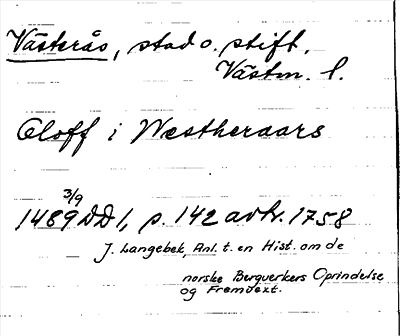 Västerås, stad o. stift.
Västm. l.
Oloff i Wæstheraars
3/9
1489 DD 1, p. 142 avtr. 1758
J. Langebek, Anl. t. en Hist. om de
norske Bergverkers Oprindelse
og Fremvext.